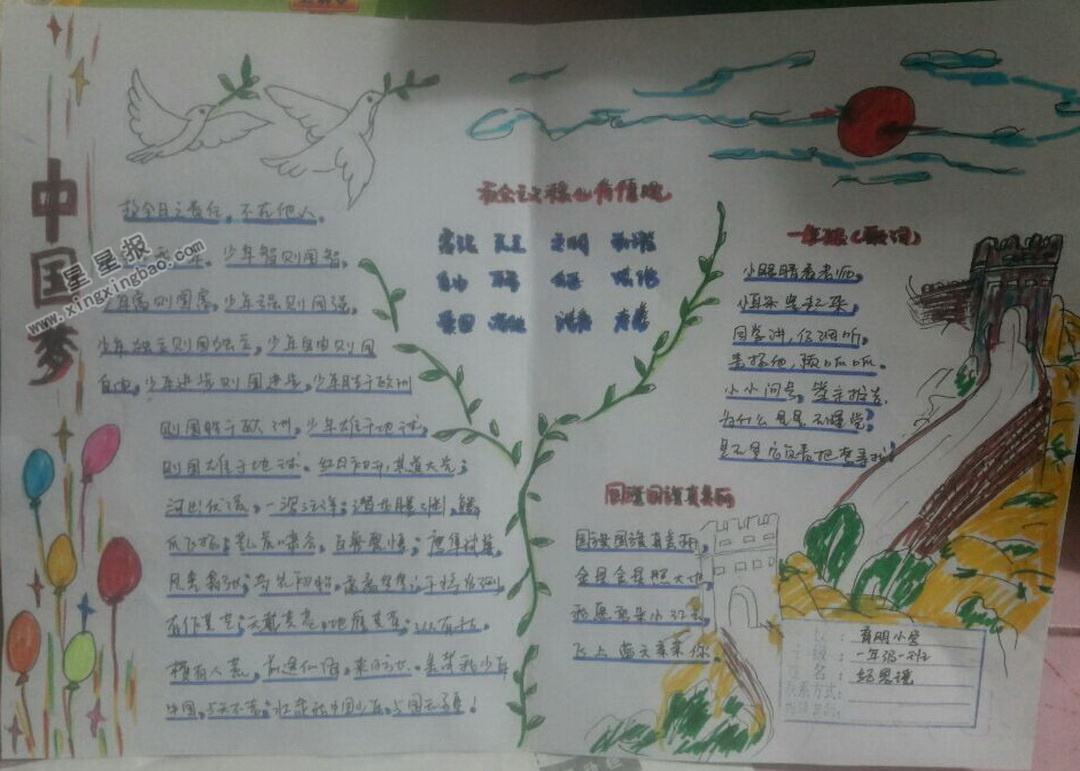 中国梦
故今日之责任，不在他人，
少年。少年智则国智，
少年富则国富，少年强则国强，
少年独立则国独立，少年自由则国
自由，少年进步则国进步，少年胜于欧洲
则国胜于欧洲，少年雄于地球，
则国雄于地球。红日初升，其道大光；
河出伏流，一泻汪洋；潜龙腾渊，鳞
爪飞扬；乳虎啸谷，百兽震惶；鹰隼试翼，
风尘翕张；奇花初胎，矞矞皇皇；干将发硎，
有作其芒；天戴其苍，地履其黄；纵有千古，
横有八荒，前途似海，来日方长。美哉我少年
中国，与天不老；壮哉我中国少年，与国无疆！
社会主义核心价值观
富强 民主 文明 和谐
自由 平等 公正 法治
爱国 敬业 诚信 友善
一年级（歌词）
小眼睛看老师，
同学讲，仔细听，
小小问号，
为什么星星不睡觉？
国旗国旗真美丽
国旗国旗真美丽，
金星金星照大地，
我愿变朵小红云，
飞上蓝天亲亲你。
育明小学
级：一年级一班
名：
联系方式：
星星报
www.xingxingbao.com